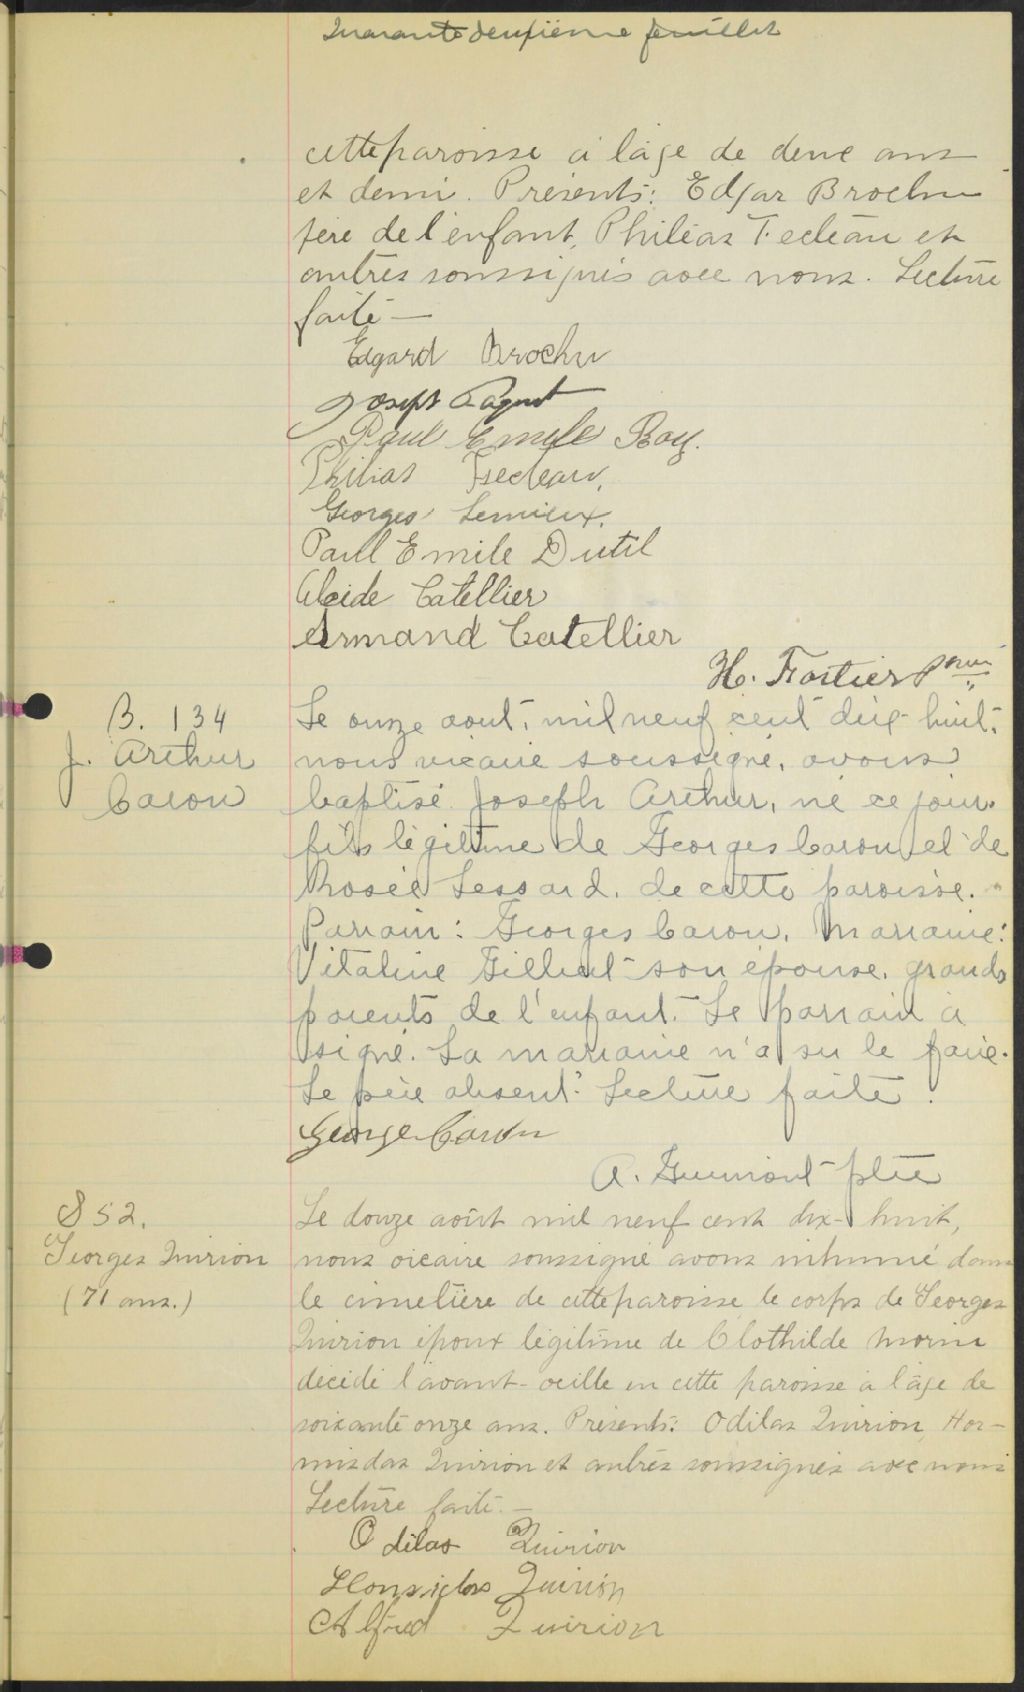 Quarante deuxième feuillet
cette paroisse à l'âge de deux ans
et demi. Présents: Edgar Brochu
père de l'enfant, Philéas Fecteau et
autres soussignés avec nous. Lecture
faite —
Edgard Brochu
Joseph Paquet
Paul Emile Roy.
Philias Fecteau.
Georges Lemieux.
Paul Emile Dutil
Alcide Catellier
Armand Catellier
H. Fortier Ptre
B. 134
J. Arthur
Caron
Le onze août, mil neuf cent dix-huit,
nous vicaire soussigné, avons
baptisé Joseph Arthur, né ce jour.
fils légitime de Georges Caron et de
Rosée Lessard. de cette paroisse.
Parrain: Georges Caron. Marraine:
Vitaline Gilbert son épouse. grands
parents de l'enfant. Le parrain a
signé. La marraine n'a su le faire.
Le père absent. Lecture faite.
George Caron
A. Guimont ptre
S 52.
Georges Quirion
(71 ans.)
Le douze août mil neuf cent dix-huit,
nous vicaire soussigné avons inhumé dans
le cimetière de cette paroisse le corps de Georges
Quirion époux légitime de Clothilde Morin
décédé l'avant-veille en cette paroisse à l'âge de
soixante onze ans. Présents: Odilas Quirion, Hor-
misdas Quirion et autres soussignés avec nous
Lecture faite. —
Odilas Quirion
Honsidas Quirion
Alfred Quirion